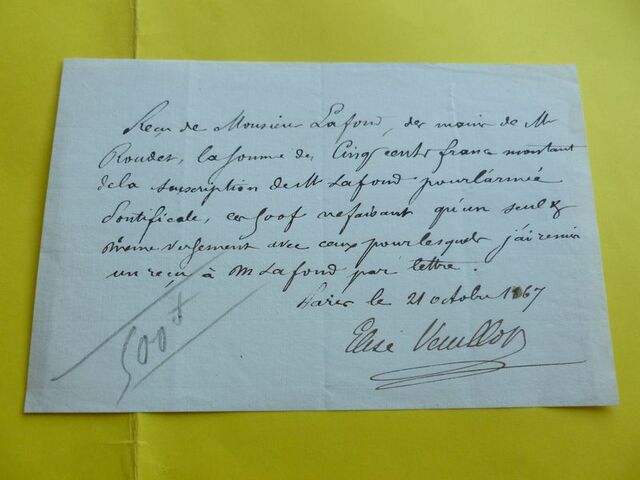 Reçu de Monsieur Lafond, des mains de Mr
Roudet, la somme de Cinq cents francs montant
de la souscription de M Lafond pour l'armée
Pontificale, ces 500f ne faisant qu'un seul &
même versement avec ceux pour lesquels j'ai remis
un reçu à M Lafond par lettre.
Paris le 21 octobre 1867
Elise Veuillot
500f